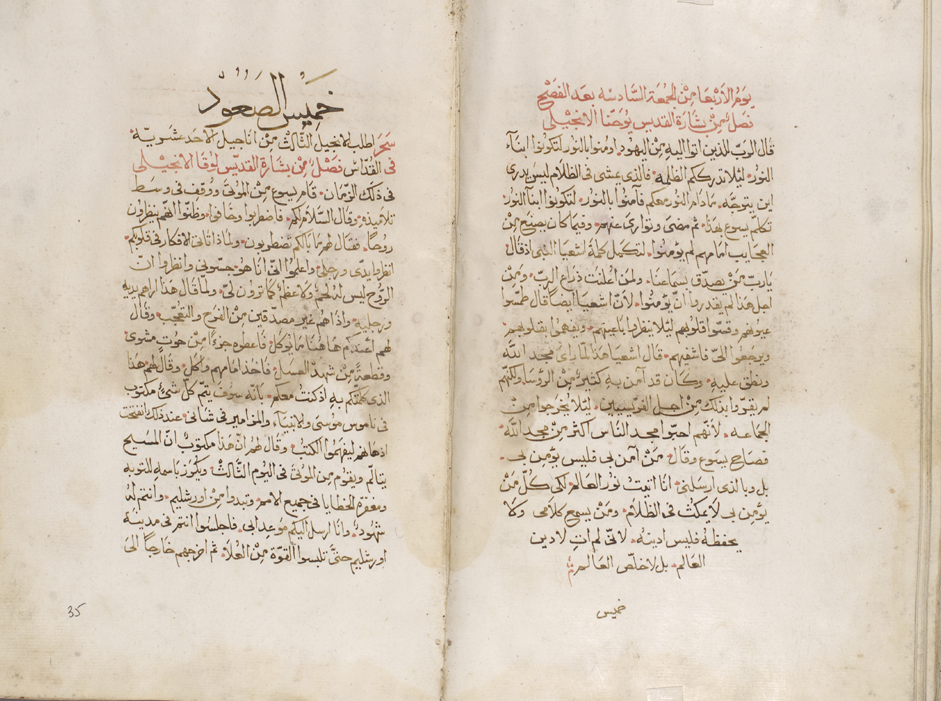 يوم الاربعا من الجمعة السادسه بعد الفصح
فصل من بشارة القديس يوحنا الانجيلي
قال الرب للذين اتوا اليه من اليهود امنوا بالنور لتكونوا ابنآء
النور لئلا تدرككم الظلمة فالذي يمشي في الظلام ليس يدري
اين يتوجه ما دام النور معكم فآمنوا بالنور لتكونوا ابنا النور
تكلم يسوع بهذا ثم مضى وتوارى عنهم وفيما كان يصنع من
العجايب امامهم لم يؤمنوا لتكمل كلمة اشعيا النبي اذ قال
يا رب من يصدق سماعنا ولمن اعلنت ذراع الرب ومن
اجل هذا لم يقدروا ان يؤمنوا لان اشعيا ايضا قال طمسوا
عيونهم وقسوا قلوبهم لئلا ينظروا باعينهم ويفهموا بقلوبهم
ويرجعوا اليّ فاشفيهم قال اشعيا هذا لما راى مجد الله
ونطق عليه وكان قد آمن به كثير من الرؤسا ولكنهم
لم يقروا بذلك من اجل الفريسيين ليلا يخرجوا من
الجماعه لانهم احبوا مجد الناس اكثر من مجد الله
فصاح يسوع وقال من آمن بي فليس يؤمن بي
بل وبالذي ارسلني انا اتيت نور العالم لكي كل من
يؤمن بي لا يمكث في الظلام ومن يسمع كلامي ولا
يحفظه فليس ادينه لانّي لم ات لادين
العالم بل لاخلّص العالم
خميس
خميس الصعود
سحر اطلب الانجيل الثالث من اناجيل الاحد عشرية
في القداس فصل من بشارة القديس لوقا الانجيلي
في ذلك الزمان قام يسوع من الموتى ووقف في وسط
تلاميذه وقال السلام لكم فاضطربوا وخافوا وظنّوا انهم ينظرون
روحا فقال لهم ما بالكم تضطربون ولماذا تاتي الافكار في قلوبكم
انظروا يدي ورجلي واعلموا اني انا هو جسّوني وانظروا ان
الروح ليس له لحم ولا عظم كما ترون لي ولما قال هذا اراهم يديه
ورجليه واذ هم غير مصدقين من الفرح والتعجب وقال
لهم اعندكم هاهنا ما يوكل فاعطوه جزءًا من حوت مشوي
وقطعة من شهد العسل فاخذ امامهم واكل وقال لهم هذا
الذي كلمتكم به اذ كنت معكم بانه سوف يتم كل شيء مكتوب
في ناموس موسى والانبيآء والمزامير في شاني عند ذلك انفتحت
اذهانهم ليفهموا الكتب وقال لهم ان هذا مكتوب ان المسيح
يتالم ويقوم من الموتى في اليوم الثالث ويكرز باسمه للتوبه
ومغفرة الخطايا في جميع الامم وتبدوا من اورشليم وانتم له
شهود وانا ارسل اليكم موعد ابي فاجلسوا انتم في مدينة
اورشليم حتى تلبسوا القوة من العلا ثم اخرجهم خارجا الى
35